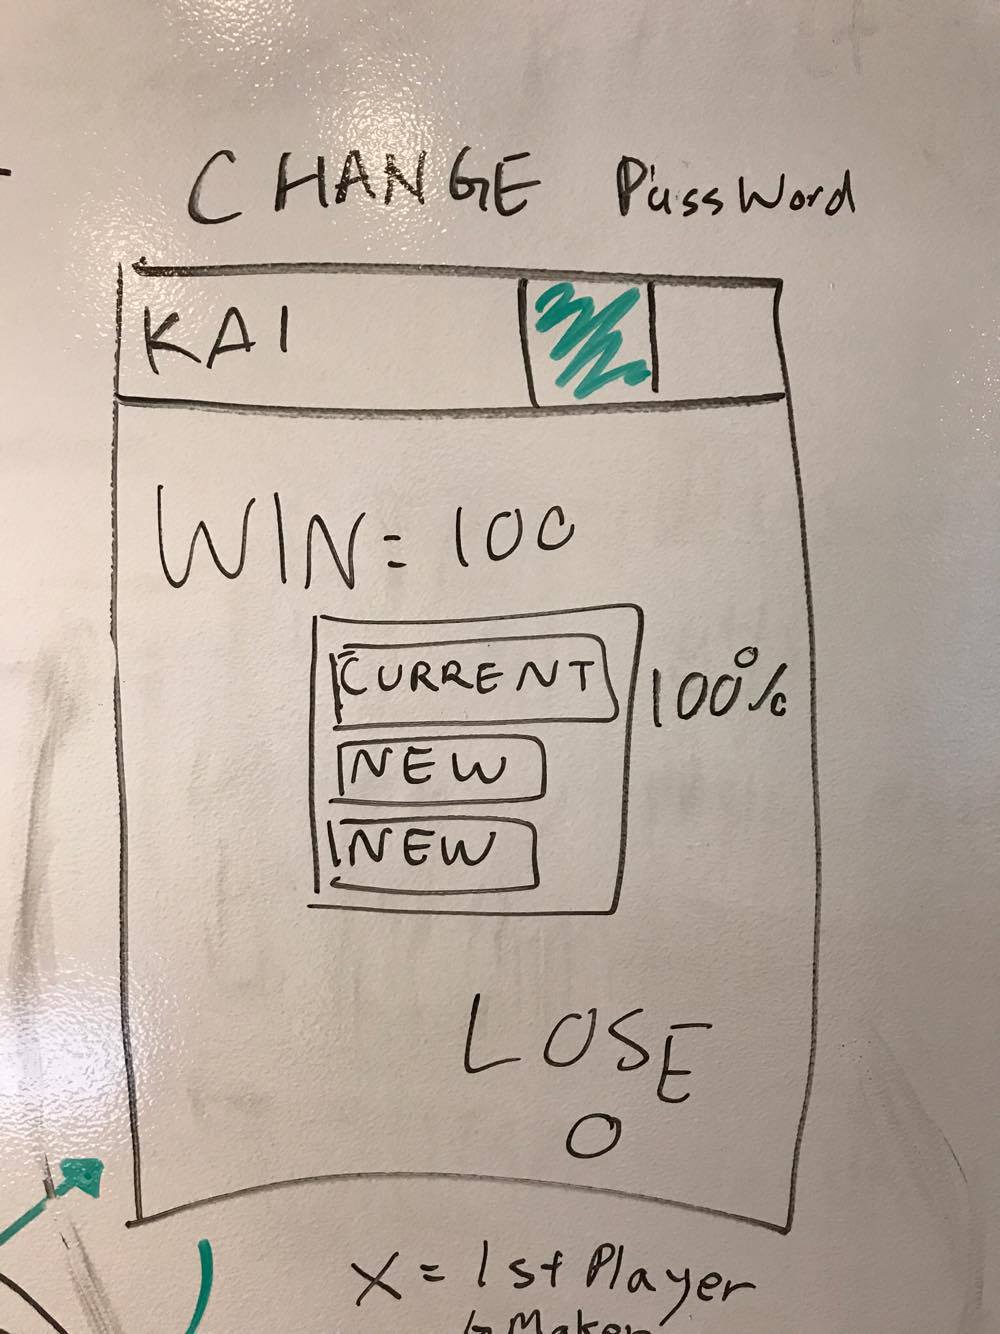 CHANGE PassWord
KAI
WIN = 100
CURRENT
100%
NEW
NEW
LOSE
0
X = 1st Player
Maker